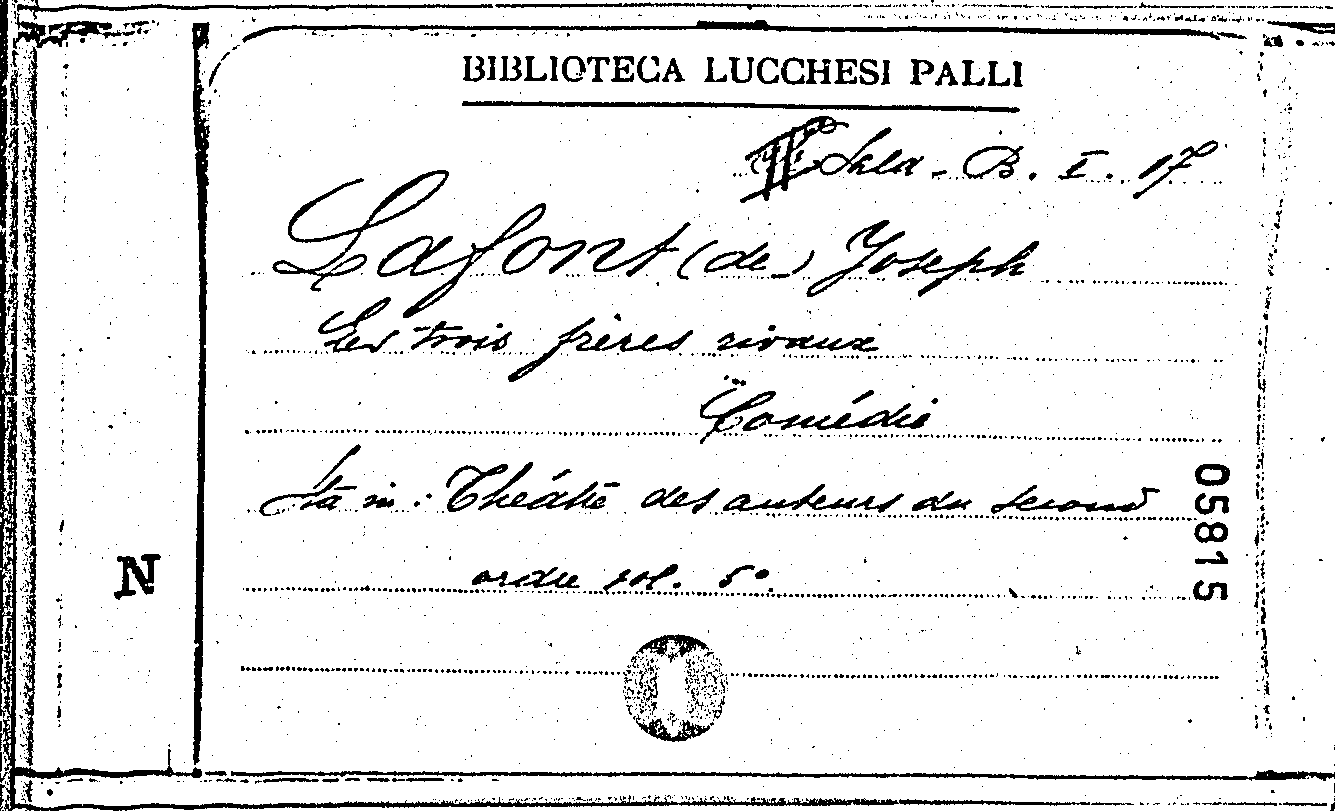 BIBLIOTECA LUCCHESI PALLI
Sala - B. I. 17
Lafont (de) Joseph
Les trois frères rivaux
Comédie
Sta in: Théâtre des auteurs du second
ordre vol. 5º
05815
N